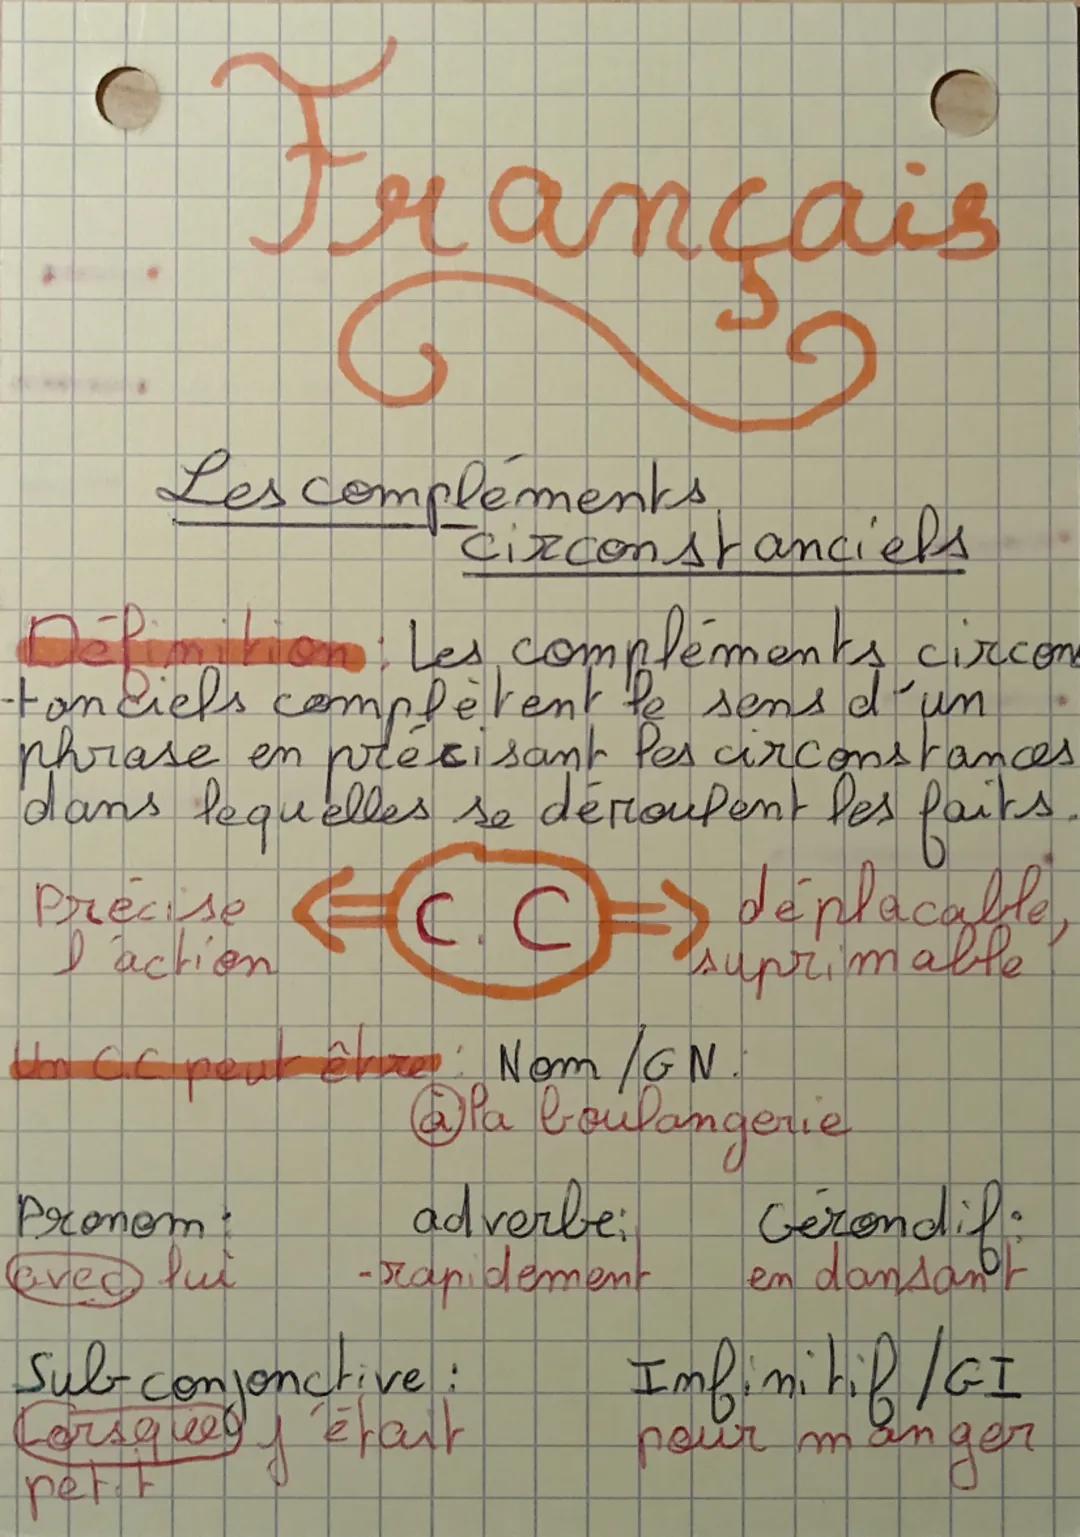 Français
Les compléments
circonstanciels
Définition : Les compléments circons
-tanciels complètent le sens d'un
phrase en précisant les circonstances
dans lequelles se déroulent les faits.
Précise
l'action
C.C
déplacable,
suprimable
Un C.C peut être : Nom / GN :
à la boulangerie
Pronom :
avec lui
adverbe :
-rapidement
Gérondif :
en dansant
Sub-conjonctive :
Lorsque j'était
petit
Infinitif / GI
pour manger